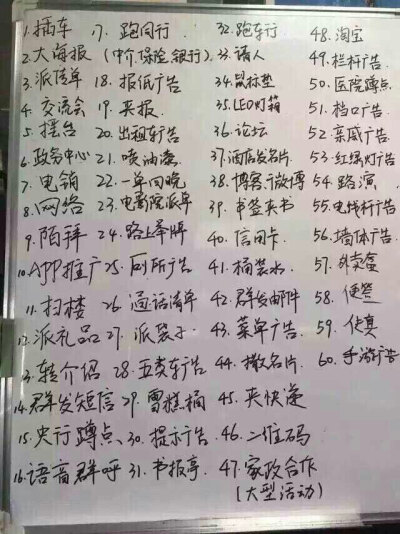 1. 插车
2. 大海报
3. 派传单
4. 交流会
5. 摆台
6. 政务中心
7. 电销
8. 网络
9. 陌拜
10. APP推广
11. 扫楼
12. 派礼品
13. 转介绍
14. 群发短信
15. 央行蹲点
16. 语音群呼
17. 跑同行
(中介.保险.银行)
18. 报纸广告
19. 夹报
20. 出租车广告
21. 喷油漆
22. 一单回晚
23. 电影院派单
24. 路上举牌
25. 厕所广告
26. 通话清单
27. 派袋子
28. 五类车广告
29. 雪糕桶
30. 提示广告
31. 书报亭
32. 跑车行
33. 请人
34. 鼠标垫
35. LED灯箱
36. 论坛
37. 酒店发名片
38. 博客.微博
39. 书签夹书
40. 信用卡
41. 桶装水
42. 群发邮件
43. 菜单广告
44. 撒名片
45. 夹快递
46. 二维码
47. 家政合作
(大型活动)
48. 淘宝
49. 栏杆广告
50. 医院蹲点
51. 档口广告
52. 亲戚广告
53. 红绿灯广告
54. 路演
55. 电线杆广告
56. 墙体广告
57. 外卖盒
58. 便签
59. 传真
60. 手游广告